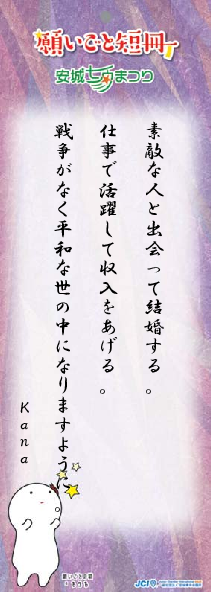 願いごと短冊
安城七夕まつり
素敵な人と出会って結婚する。
仕事で活躍して収入をあげる。
戦争がなく平和な世の中になりますように
Kana
JCI